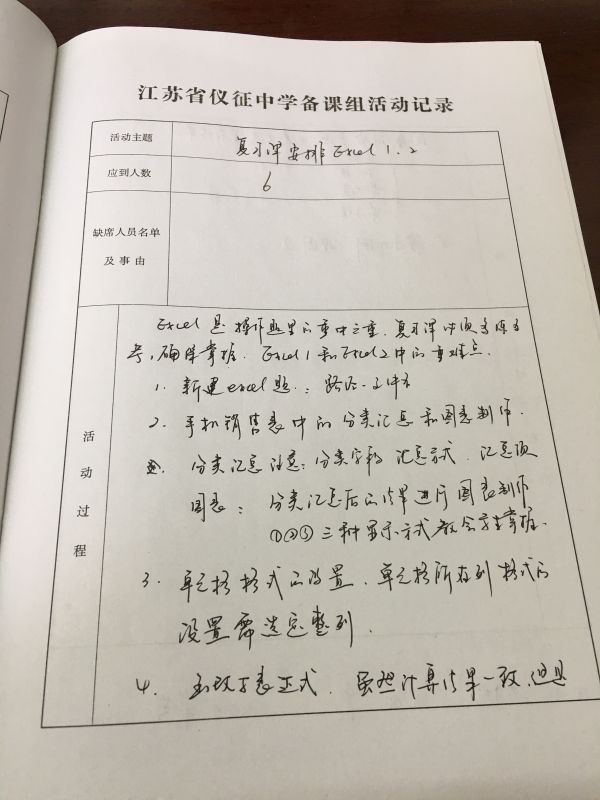 江苏省仪征中学备课组活动记录
活动主题 复习课安排 Excel 1、2
应到人数 6
缺席人员名单
及事由
活动过程
Excel 是操作题里的重中之重，复习课必须多练多
考，确保掌握. Excel1 和Excel2中的重难点.
1. 新建excel题：路径、文件名
2. 手机销售表中的分类汇总和图表制作.
分类汇总注意：分类字段 汇总方式、汇总项
图表：分类汇总后的结果进行图表制作
①②③三种显示方式教会学生掌握.
3. 单元格格式的设置、单元格所在列格式的
设置需选定整列.
4. 表达式. 虽然计算结果一致，但是